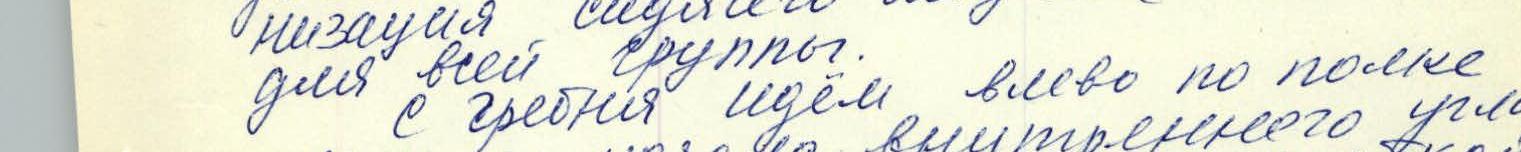 низация сидячего
для всей группы.
С гребня идём влево по полке
внутреннего угла